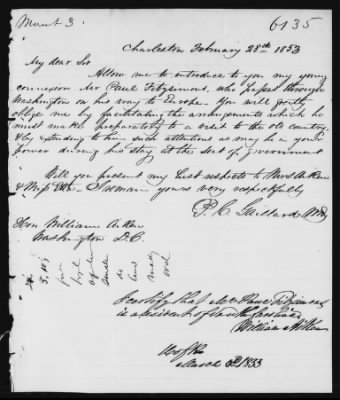 March 3.
6135
Charleston February 28th 1853
My dear Sir
Allow me to introduce to you my young
connexion Mr Paul Fitzsimons, who passes through
Washington on his way to Europe. You will greatly
oblige me by facilitating the arrangements which he
must make preparatory to a visit to the old country,
& by extending to him such attentions as may be in your
power during his stay at the seat of government
Will you present my best respects to Mrs Aiken
& Miss I remain yours very respectfully
P. C. Gaillard MD
Hon William Aiken
Washington D.C.
I certify that Mr Paul Fitzsimons
is a resident of South Carolina
William Aiken
Ho of Rs
March 3d 1853